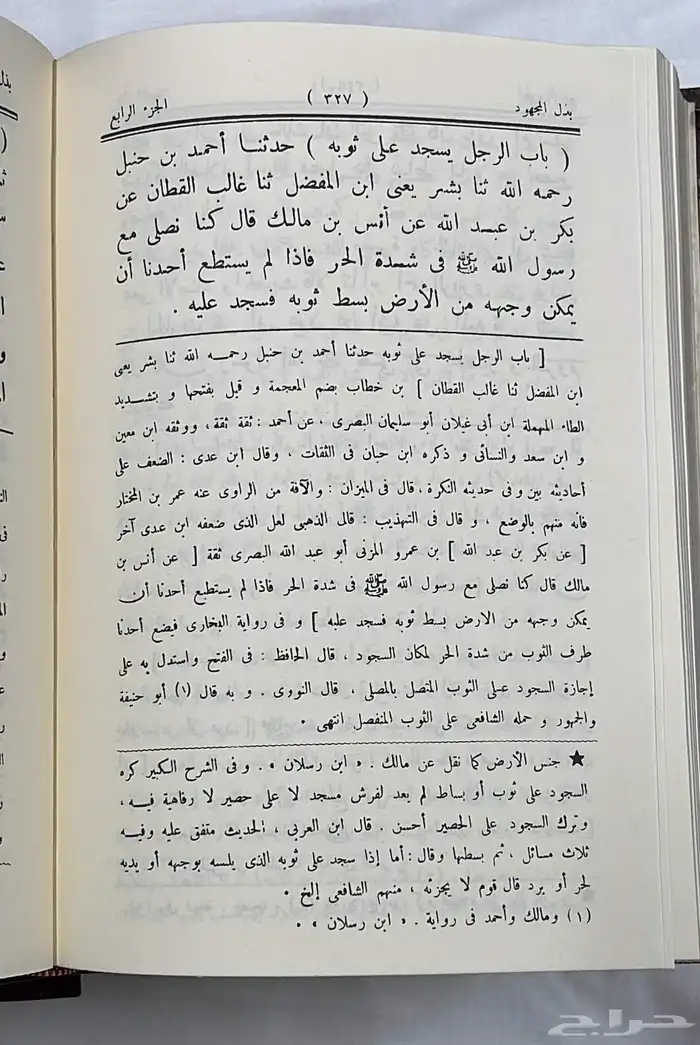 بذل المجهود ( ٣٢٧ ) الجزء الرابع
( باب الرجل يسجد على ثوبه ) حدثنا أحمد بن حنبل
رحمه الله ثنا بشر يعنى ابن المفضل ثنا غالب القطان عن
بكر بن عبد الله عن أنس بن مالك قال كنا نصلى مع
رسول الله ﷺ فى شدة الحر فاذا لم يستطع أحدنا أن
يمكن وجهه من الأرض بسط ثوبه فسجد عليه .
[ باب الرجل يسجد على ثوبه حدثنا أحمد بن حنبل رحمه الله ثنا بشر يعنى
ابن المفضل ثنا غالب القطان ] بن خطاب بضم المعجمة و قيل بفتحها و بتشديد
الطاء المهملة ابن أبى غيلان أبو سليمان البصرى ، عن أحمد : ثقة ثقة ، ووثقه ابن معين
و ابن سعد والنسائى و ذكره ابن حبان فى الثقات ، وقال ابن عدى : الضعف على
أحاديثه بين و فى حديثه النكرة ، قال فى الميزان : والآفة من الراوى عنه عمر بن المختار
فأنه متهم بالوضع ، و قال فى التهذيب : قال الذهبى لعل الذى ضعفه ابن عدى آخر
[ عن بكر بن عبد الله ] بن عمرو المزنى أبو عبد الله البصرى ثقة [ عن أنس بن
مالك قال كنا نصلى مع رسول الله ﷺ فى شدة الحر فاذا لم يستطيع أحدنا أن
يمكن وجهه من الارض بسط ثوبه فسجد عليه ] و فى رواية البخارى فيضع أحدنا
طرف الثوب من شدة الحر لمكان السجود ، قال الحافظ : فى الفتح واستدل به على
إجازة السجود على الثوب المتصل بالمصلى ، قال النووى . و به قال (١) أبو حنيفة
والجمهور و حمله الشافعى على الثوب المنفصل انتهى .
★ جنس الأرض كما نقل عن مالك . « ابن رسلان » . و فى الشرح الكبير كره
السجود على ثوب أو بساط لم يعد لفرش مسجد لا على حصير لا رفاهية فيه ،
و ترك السجود على الحصير أحسن . قال ابن العربى ، الحديث متفق عليه وفيه
ثلاث مسائل ، ثم بسطها وقال : أما إذا سجد على ثوبه الذى يلبسه بوجهه أو يديه
لحر أو برد قال قوم لا يجزئه ، منهم الشافعى إلخ .
(١) ومالك وأحمد فى رواية . « ابن رسلان » .
حراج